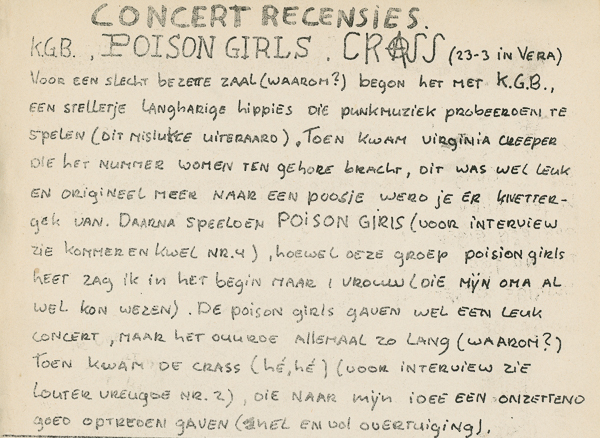 CONCERT RECENSIES.
K.G.B., POISON GIRLS, CRASS (23-3 IN VERA)
VOOR EEN SLECHT BEZETTE ZAAL (WAAROM?) BEGON HET MET K.G.B.,
EEN STELLETJE LANGHARIGE HIPPIES DIE PUNKMUZIEK PROBEERDEN TE
SPELEN (DIT MISLUKTE UITERAARD). TOEN KWAM VIRGINIA CREEPER
DIE HET NUMMER WOMEN TEN GEHORE BRACHT, DIT WAS WEL LEUK
EN ORIGINEEL MEER NAAR EEN POOSJE WERD JE ER KNETTER-
GEK VAN. DAARNA SPEELDEN POISON GIRLS (VOOR INTERVIEW
ZIE KOMMER EN KWEL NR. 4), HOEWEL DEZE GROEP POISION GIRLS
HEET ZAG IK IN HET BEGIN MAAR 1 VROUW (DIE MIJN OMA AL
WEL KON WEZEN). DE POISON GIRLS GAVEN WEL EEN LEUK
CONCERT, MAAR HET DUURDE ALLEMAAL ZO LANG (WAAROM?)
TOEN KWAM DE CRASS (HÉ, HÉ) (VOOR INTERVIEW ZIE
LOUTER VREUGDE NR. 2), DIE NAAR MIJN IDEE EEN ONZETTEND
GOED OPTREDEN GAVEN (SNEL EN VOL OVERTUIGING).